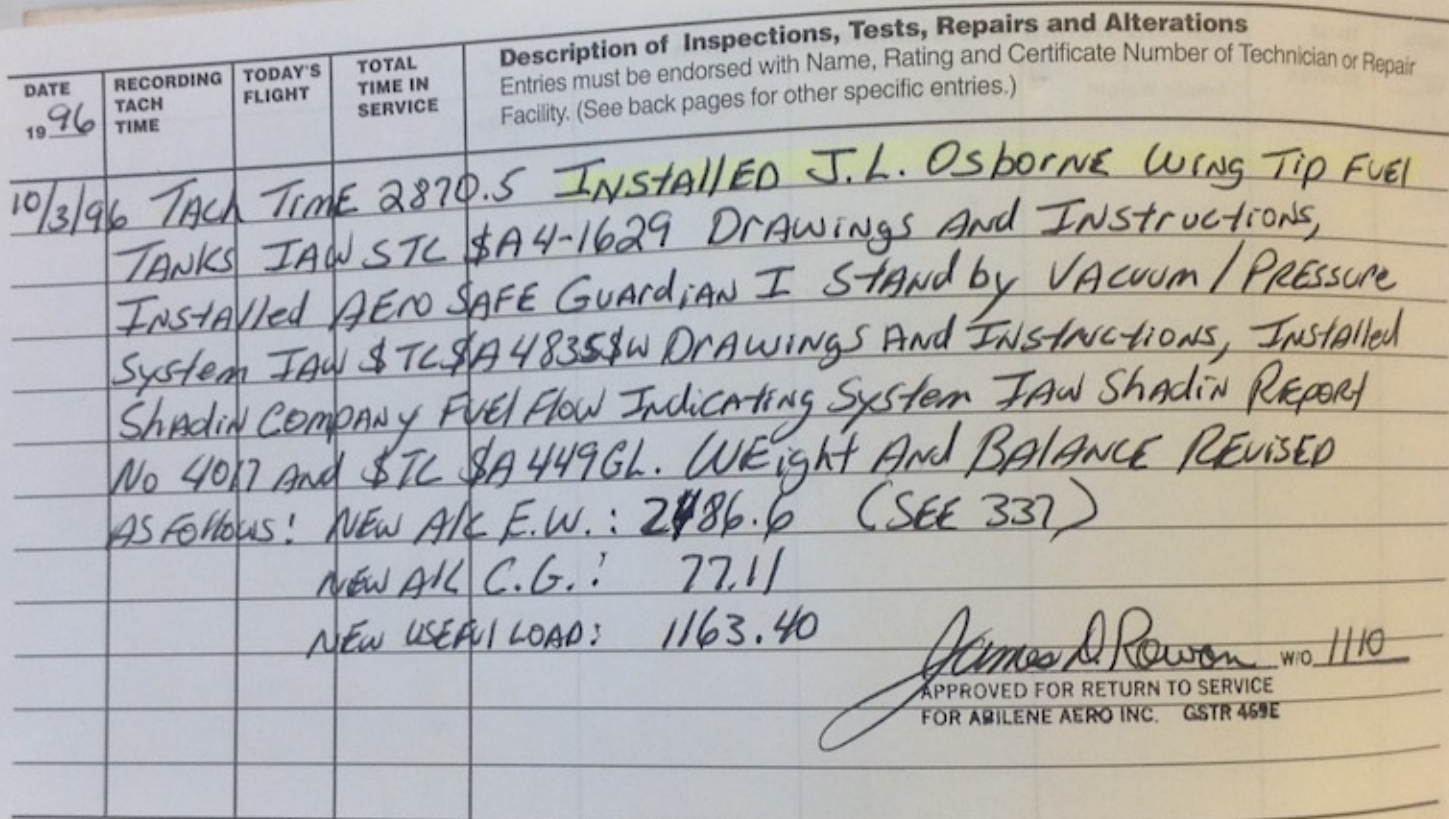 Description of Inspections, Tests, Repairs and Alterations
Entries must be endorsed with Name, Rating and Certificate Number of Technician or Repair
Facility. (See back pages for other specific entries.)
DATE
19 96
RECORDING
TACH
TIME
TODAY'S
FLIGHT
TOTAL
TIME IN
SERVICE
10/3/96 TACH TIME 2870.5 INSTALLED J.L. OSBORNE WING TIP FUEL
TANKS IAW STC $A4-1629 DRAWINGS AND INSTRUCTIONS,
INSTALLED AERO SAFE GUARDIAN I STAND by VACUUM / PRESSURE
SYSTEM IAW $TC$A4835$W DRAWINGS AND INSTRUCTIONS, INSTALLED
SHADIN COMPANY FUEL FLOW INDICATING SYSTEM IAW SHADIN REPORT
NO 4017 AND $TC $A449GL. WEIGHT AND BALANCE REVISED
AS FOLLOWS: NEW A/C E.W.: 2486.6 (SEE 337)
NEW A/C C.G.: 77.11
NEW USEFUL LOAD: 1163.40
James D. Rowan W/O 1110
APPROVED FOR RETURN TO SERVICE
FOR ABILENE AERO INC. GSTR 469E